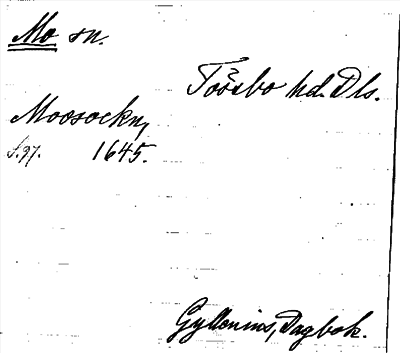 Mo sn.
Tössbo hd. Dls.
Moosockn,
s. 97. 1645.
Gyllenius, Dagbok.